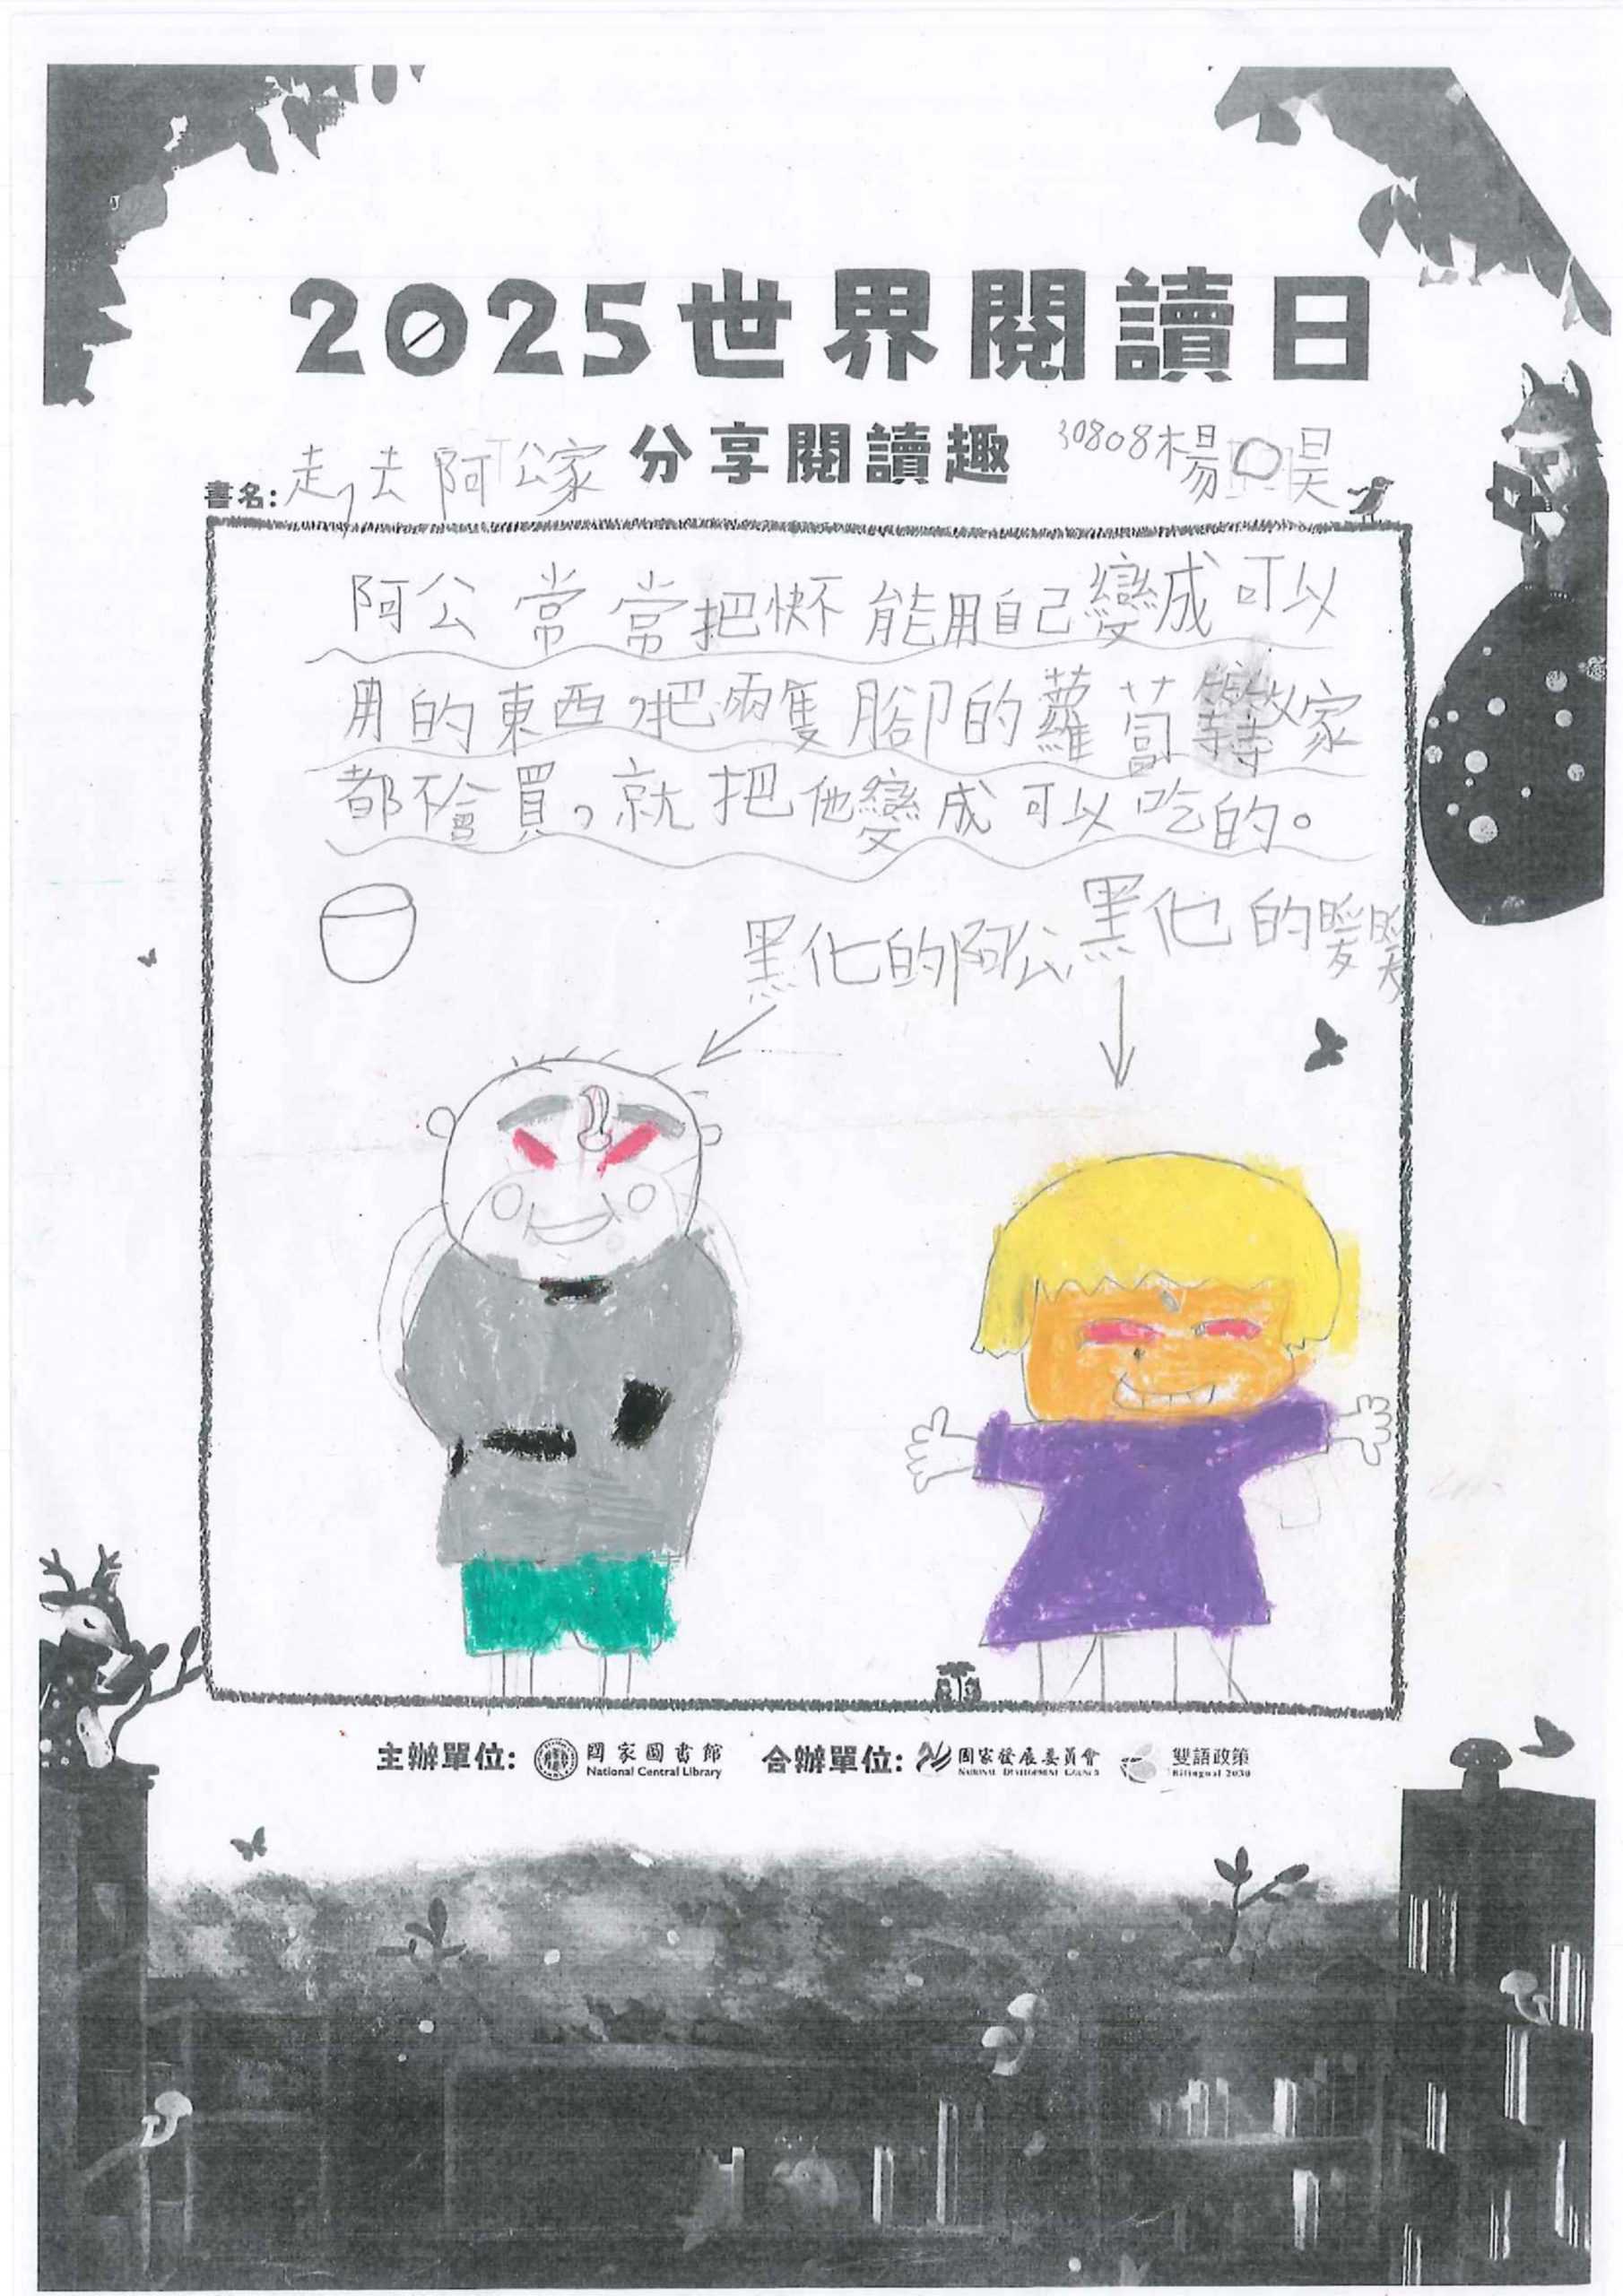 2025世界閱讀日
分享閱讀趣
書名: 走,去阿公家
30808楊〇昊
阿公常常把快不能用自己變成可以
用的東西,把兩隻腳的蘿蔔 家
都不會買,就把他變成可以吃的。
黑化的阿公
黑化的暖暖
主辦單位: 國家圖書館 National Central Library 合辦單位: 國家發展委員會 NATIONAL DEVELOPMENT COUNCIL 雙語政策 Bilingual 2030